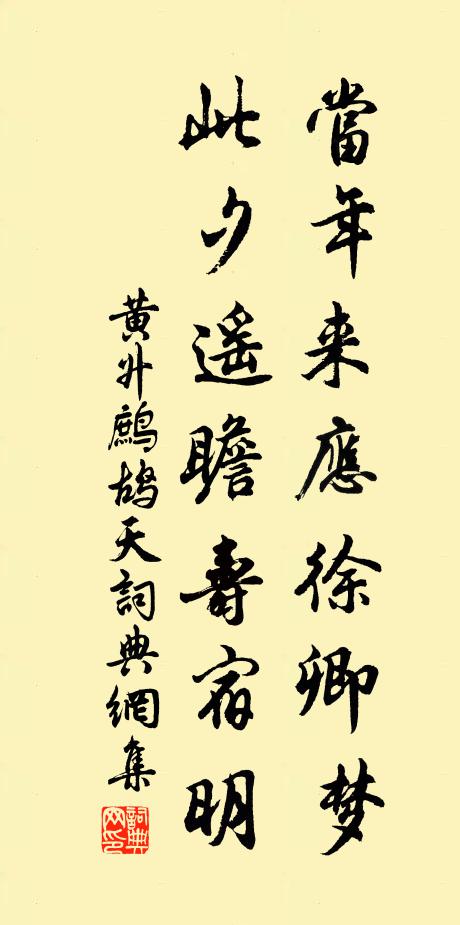 當年来應徐卿梦
此夕遥瞻壽宿明
黄升鷓鴣天詞典網集
詞典
网印